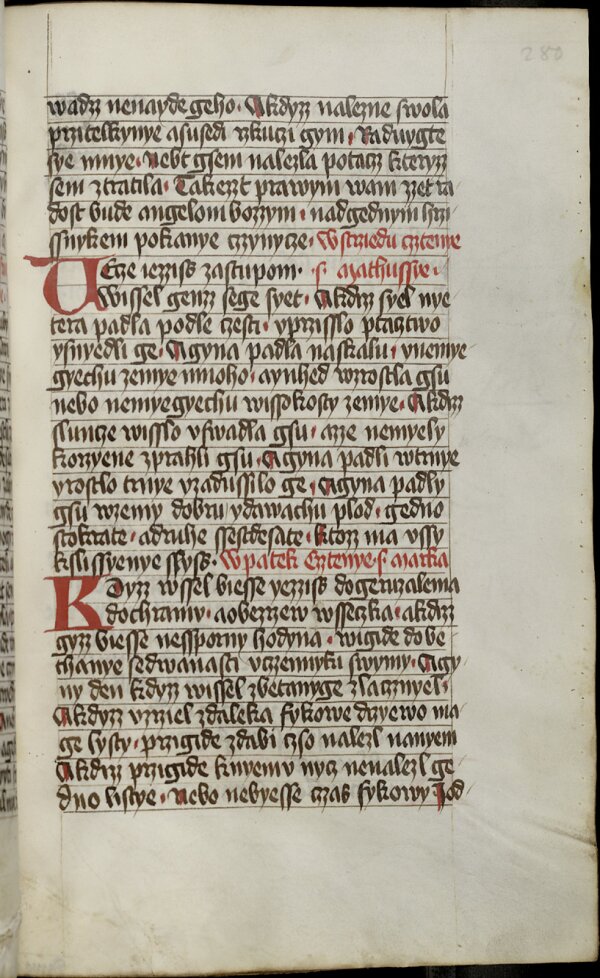 280
wadz nenayde geho. Akdyz nalezne swola
przitelkynye asusedi rzkuczi gym. Raduygte
sye mnye. Nebt gsem nalezla potacz kteryz
sem ztratila. Takezt prawym wam zzet ra
dost bude angelom bozzym. nadgednym hrzi
ssnykem pokanye czynycze. Wstrziedu cztenye
s. Mathussye.
Vecze iezziss zastupom.
Wissel genz sege syet. Akdyz syel nye
tera padla podle czesti. yprzisslo ptacztwo
ysnyedli ge. Agyna padla naskalu. ynemye
gyechu zemye mnoho. aynhed wzrostla gsu
nebo nemyegyechu wissokosty zemye. Akdyz
sluncze wisslo vswadla gsu. azze nemyely
korzyene zprahli gsu. Agyna padli wtrnye
yrostlo trnye yzadussilo ge. Agyna padly
gsu wzemy dobru ydawachu plod. gedno
stokrate. adruhe ssestdesate. ktoz ma vssy
kslissyenye slyss. Wpatek Cztenye s. Marka
Kdyzz wssel biesse yezziss dogeruzalema
dochramy. aobezrzew wsseczka. akdyz
gyzz biesse nessporny hodyna. wigide dobe
thanye sedwanasti vczennyky swymy. Agy
ny den kdyz wissel zbetanyge zlacznyel.
Akdyz vzrziel zdaleka fykowe drzyewo ma
ge lysty. przigide zdabi czso nalezl nanyem
Akdyz przigide knyemv nycz nenalezl ge
dno listye. Nebo nebyesse czas fykowy. Iod